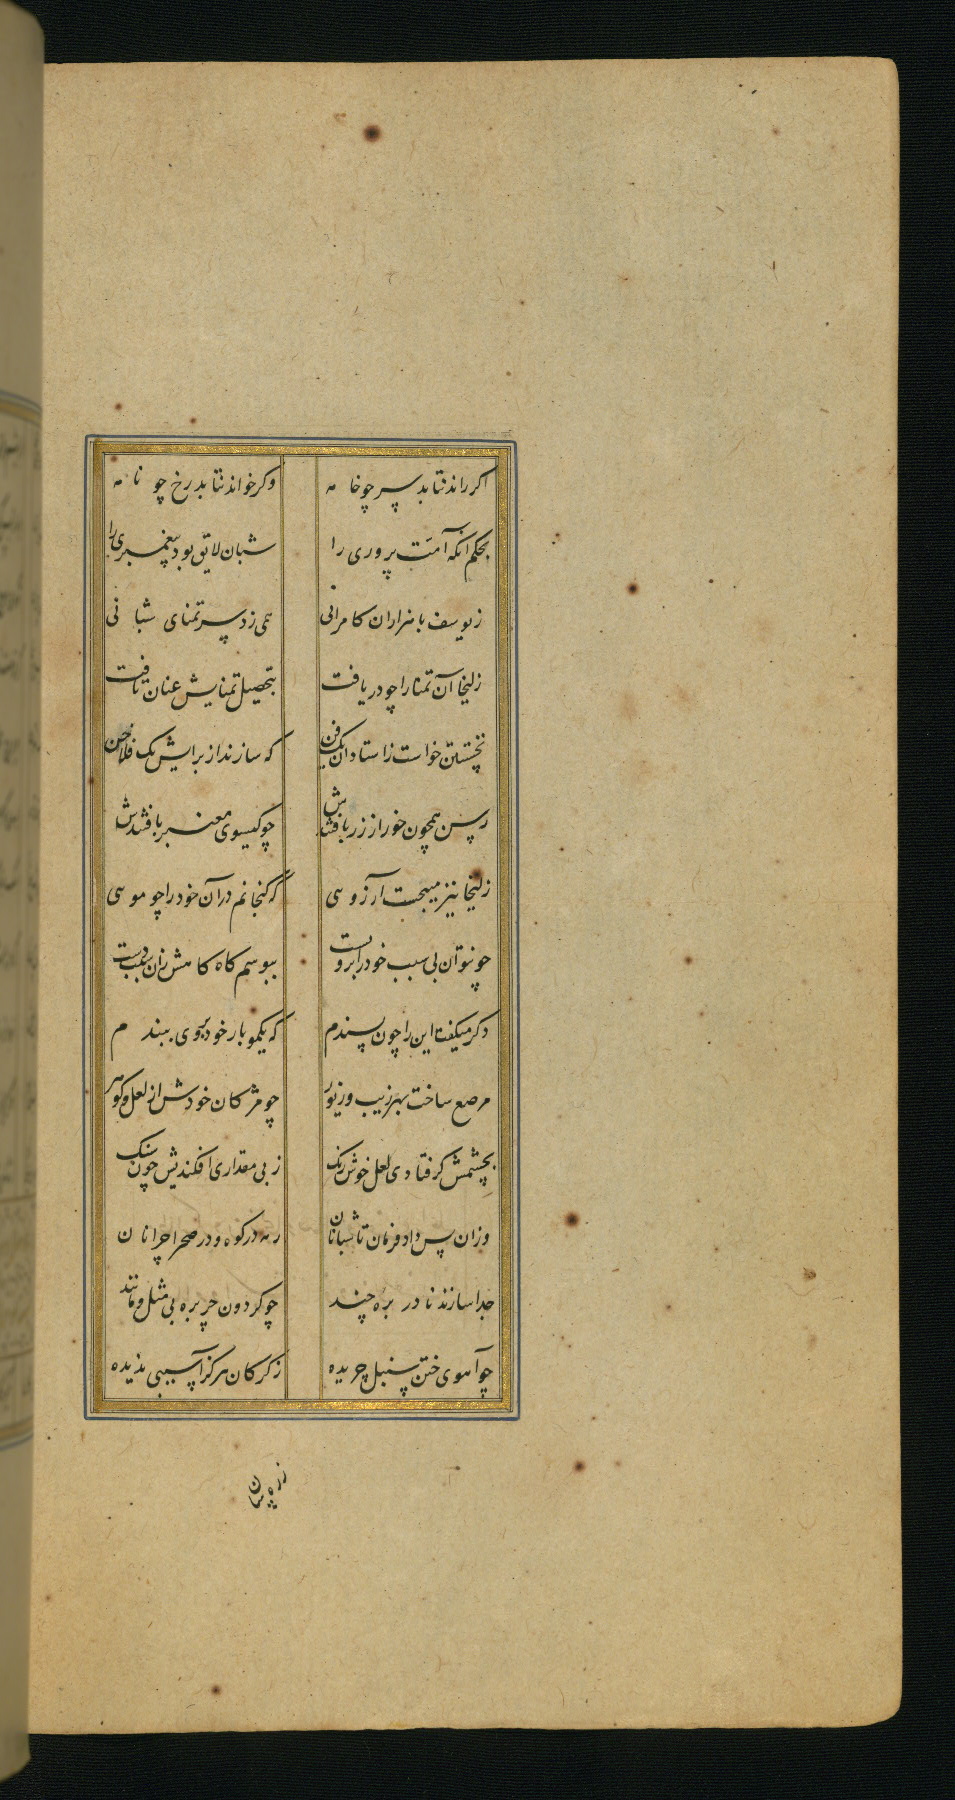 اکر راند نتابد سر چو خامه
وکر خواند نتابد رخ چو نامه
بحکم آنکه امت پروری را
شبان لایق بود پیغمبری را
ز یوسف با هزاران کامرانی
همی زد سر تمنای شبانی
زلیخا آن تمنا را چو دریافت
بتحصیل تمنایش عنان تافت
نخستین خواست ز استادان یک فن
که سازند از برایش یک فلاخن
رسن همچون خور از زر بافتندش
چو کیسوی معنبر بافتندش
زلیخا نیز میجست آرزویی
که کنجانم در آن خود را چو مویی
چو نتوان بی سبب خود را برو بست
ببوسم کاه کاهش زان سبب دست
دکر میکفت این را چون پسندم
که یکمو بار خود بروی ببندم
مرصع ساخت بهر زیب و زیور
چو مژکان خودش از لعل و کوهر
بچشمش کر فتادی لعل خوش رنک
ز بی مقداری افکندیش چون سنک
وزان پس داد فرمان تا شبانان
رمه در کوه و در صحرا چرانان
جدا سازند نادر بره چند
چو کردون چر بره بی مثل و مانند
چو آهوی ختن سنبل چریده
ز کرکان هرکز آسیبی ندیده
زره پشمان